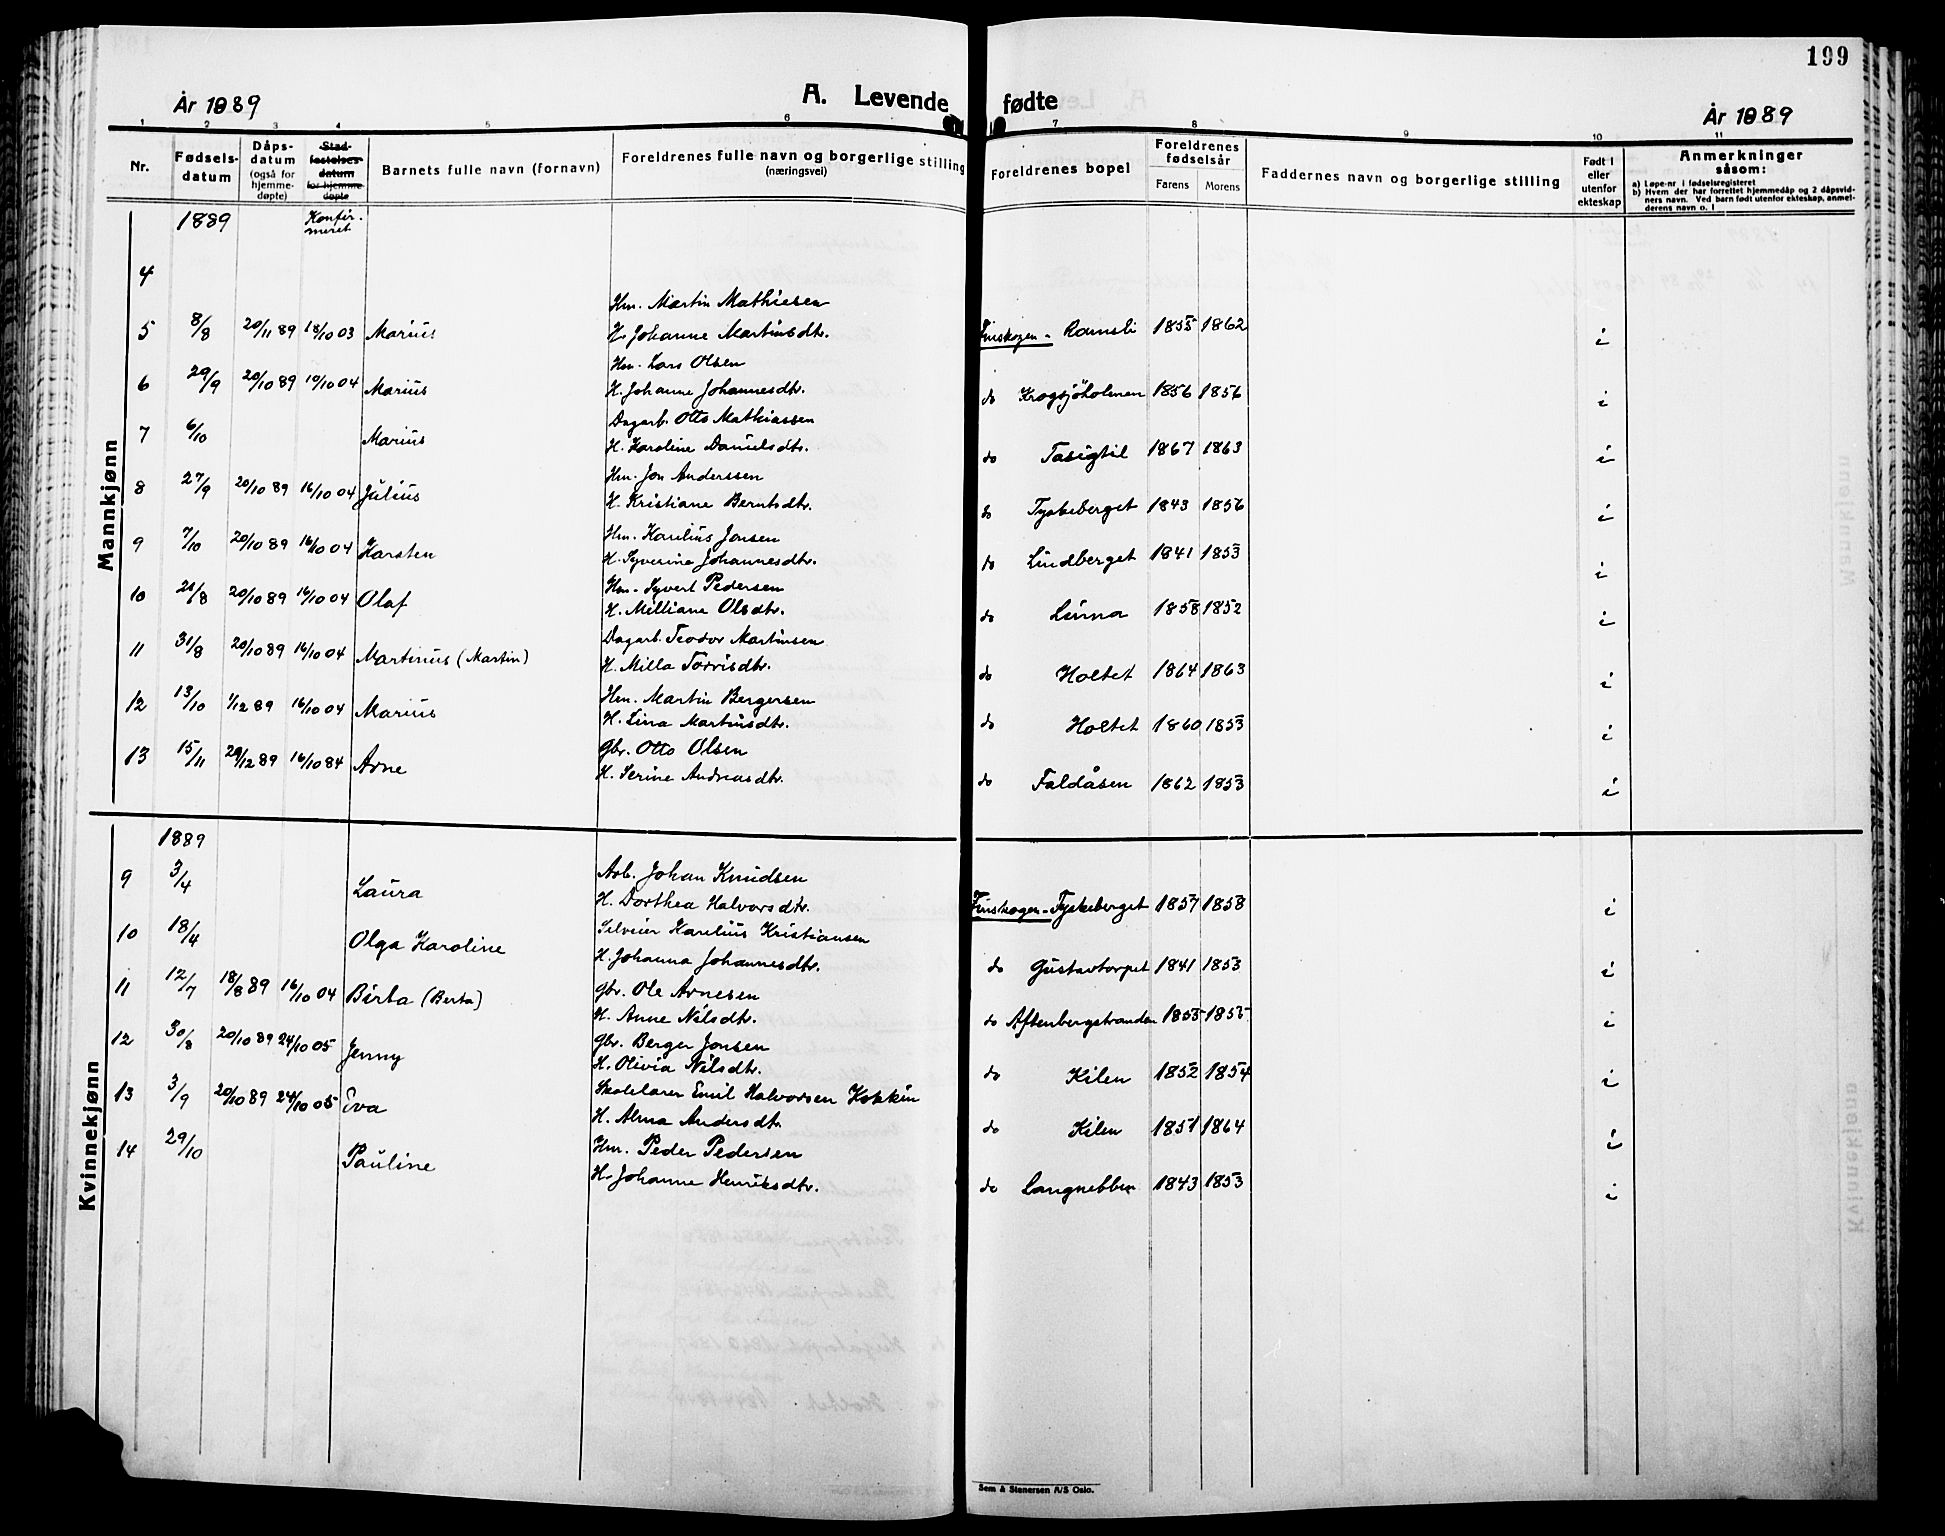 199
År 1889
A. Levende fødte
År 1889
1 2 3 4 5 6 7 8 9 10 11
Nr.
Fødsels-
datum
Dåps-
datum
(også for
hjemme-
døpte)
Stad-
festelses-
datum
for hjemme-
døpte
Barnets fulle navn (fornavn)
Foreldrenes fulle navn og borgerlige stilling
(næringsvei)
Foreldrenes bopel
Foreldrenes
fødselsår
Farens Morens
Faddernes navn og borgerlige stilling
Født i
eller
utenfor
ekteskap
Anmerkninger
såsom:
a) Løpe-nr i fødselsregisteret
b) Hvem der har forrettet hjemmedåp og 2 dåpsvid-
ners navn. Ved barn født utenfor ekteskap, anmel-
derens navn o. l
Mannkjønn
1889 Konfir-
meret
4
Hm. Martin Mathiesen
5 8/8 20/11 89 18/10 03 Marius H. Johanne Martinsdtr. Finskogen - Ramsli 1855 1862 i
Hm. Lars Olsen
6 29/9 20/10 89 19/10 04 Marius H. Johanne Johannesdtr. do Krogsjöholmen 1856 1856 i
Dagarb. Otto Mathiassen
7 6/10 Marius H. Karoline Danielsdtr. do Tasigtil 1867 1863 i
Hm. Jon Anderssen
8 27/9 20/10 89 16/10 04 Julius H. Kristiane Berntsdtr. do Tyskeberget 1843 1856 i
Hm. Karelius Jonsen
9 7/10 20/10 89 16/10 04 Karsten H. Syverine Johannesdtr. do Lindberget 1841 1853 i
Hm. Syvert Pedersen
10 21/8 20/10 89 16/10 04 Olaf H. Milliane Olsdtr. do Linna 1858 1852 i
Dagarb. Teodor Martinsen
11 31/8 20/10 89 16/10 04 Martinus (Martin) H. Milla Torrisdtr. do Holtet 1864 1863 i
Hm. Martin Bergersen
12 13/10 1/12 89 16/10 04 Marius H. Lina Martinsdtr. do Holtet 1860 1853 i
Gbr. Otto Olsen
13 15/11 29/12 89 16/10 84 Arne H. Serine Andreasdtr. do Faldåsen 1862 1853 i
Kvinnekjønn
1889
Arb. Johan Knudsen
9 3/4 Laura H. Dorthea Halvorsdtr. Finskogen - Tyskeberget 1857 1858 i
Selveier Karelius Kristiansen
10 18/4 Olga Karoline H. Johanna Johannesdtr. do Gustavtorpet 1841 1853 i
Gbr. Ole Arnesen
11 12/7 18/8 89 16/10 04 Birta (Berta) H. Anne Nilsdtr. do Aftenbergstranden 1855 1855 i
Gbr. Berger Jonsen
12 30/8 20/10 89 24/10 05 Jenny H. Olivia Nilsdtr. do Kilen 1852 1854 i
Skolelærer Emil Halvorsen Kokkin
13 3/9 20/10 89 24/10 05 Eva H. Alma Andersdtr. do Kilen 1851 1864 i
Hm. Peder Pedersen
14 29/10 Pauline H. Johanne Henriksdtr. do Langnebben 1843 1853 i
Sem & Stenersen A/S Oslo.